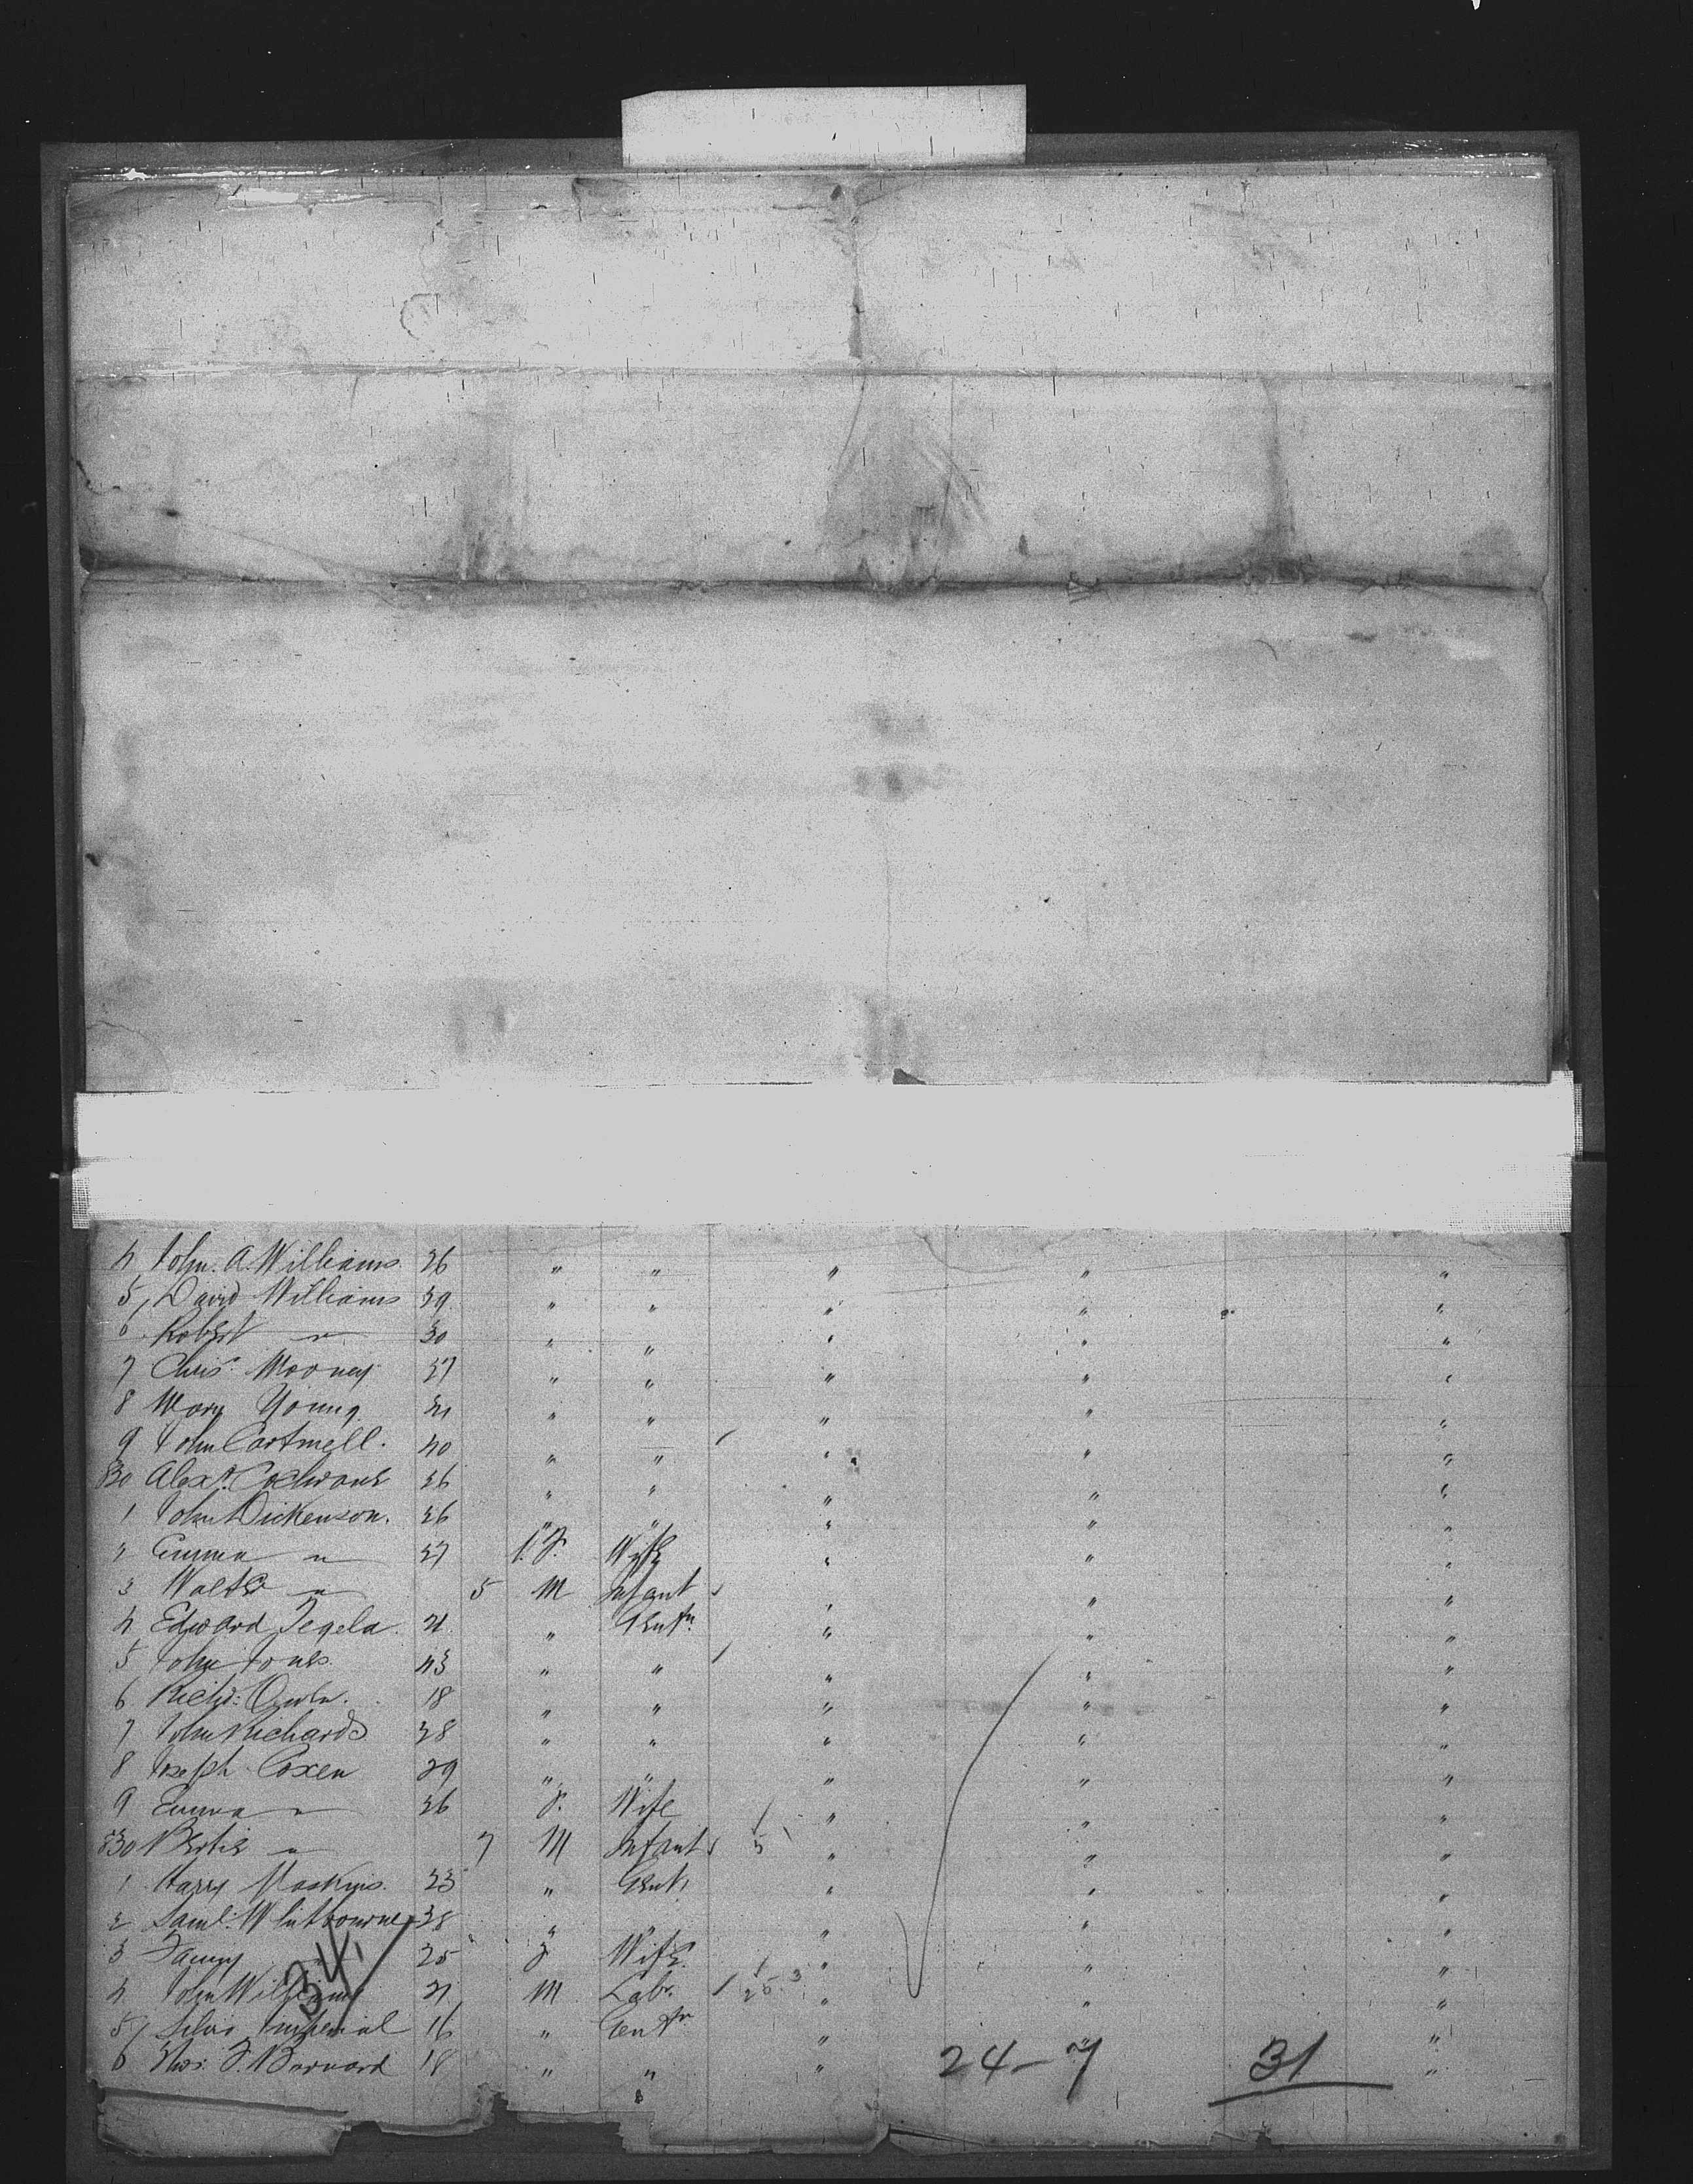 4 John. A. Williams 26 " " " " "
5 David Williams 29 " " " " "
6 Robert " 30 " " " " "
7 Chris. Mooney 27 " " " " "
8 Mary Young 21 " " " " "
9 John Cartmell. 40 " " " " "
830 Alexr. Cochrane 26 " " " " "
1 John Dickenson. 26 " " " " "
2 Emma " 27 F. Wife " " "
3 Walter " 5 M Infant " " "
4 Edward 21 " Gentn. " " "
5 John Jones. 43 " " " " "
6 Richd: Owen. 18 " " " " "
7 John Richards 28 " " " " "
8 Joseph Coxen 29 " " " " "
9 Emma " 26 F. Wife " " "
830 Bertie " 7 M Infant " " "
1 Harry 23 " Gent. " " "
2 Saml. Whitbourne 28 " " " " "
3 Fanny 25 F Wife. " " "
4 John Williams 21 M Labr. " " "
34
5 Imperial 16 " Gentn " " "
6 Thos: F. Barnard 18 " " " "
24-7 31